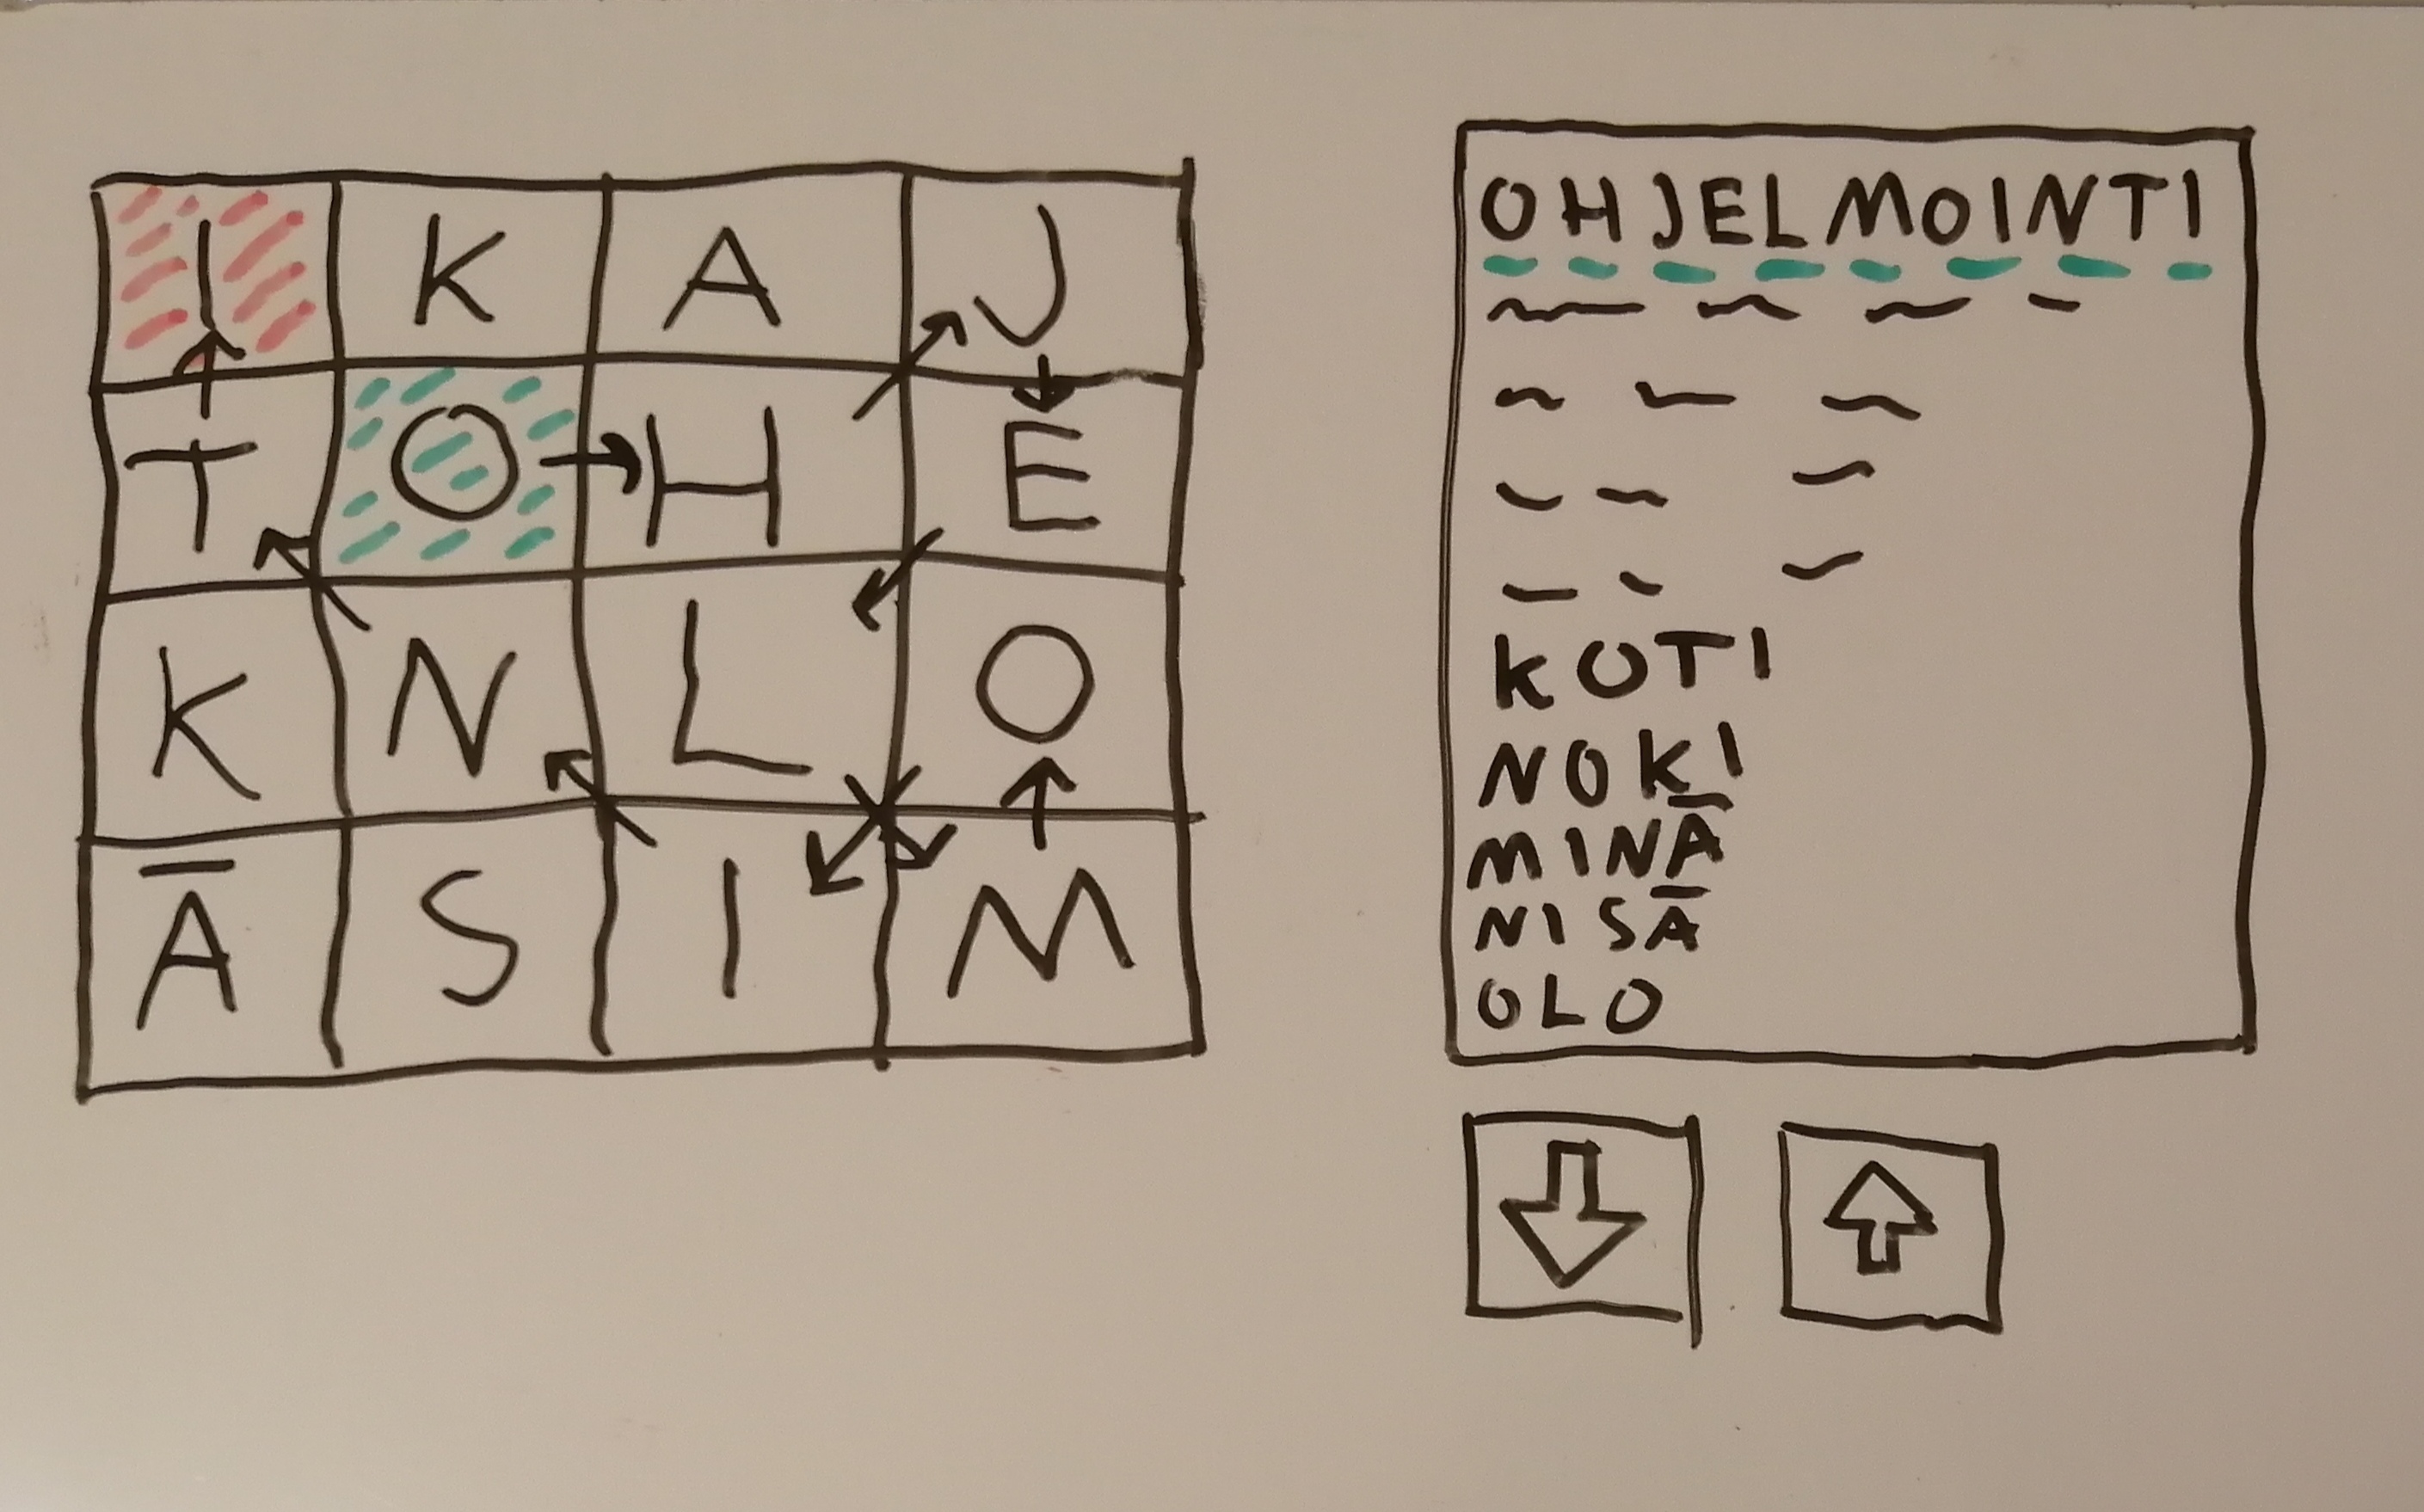 I K A J
T O H E
K N L O
Ā S I M
OHJELMOINTI
KOTI
NOKI
MINĀ
NISĀ
OLO